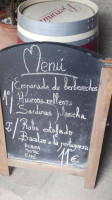 Menú
1º/ Empanada de berberechos
Huevos rellenos
Sardinas plancha
2º/ Rabo estofado
Bacalao a la portuguesa
11€